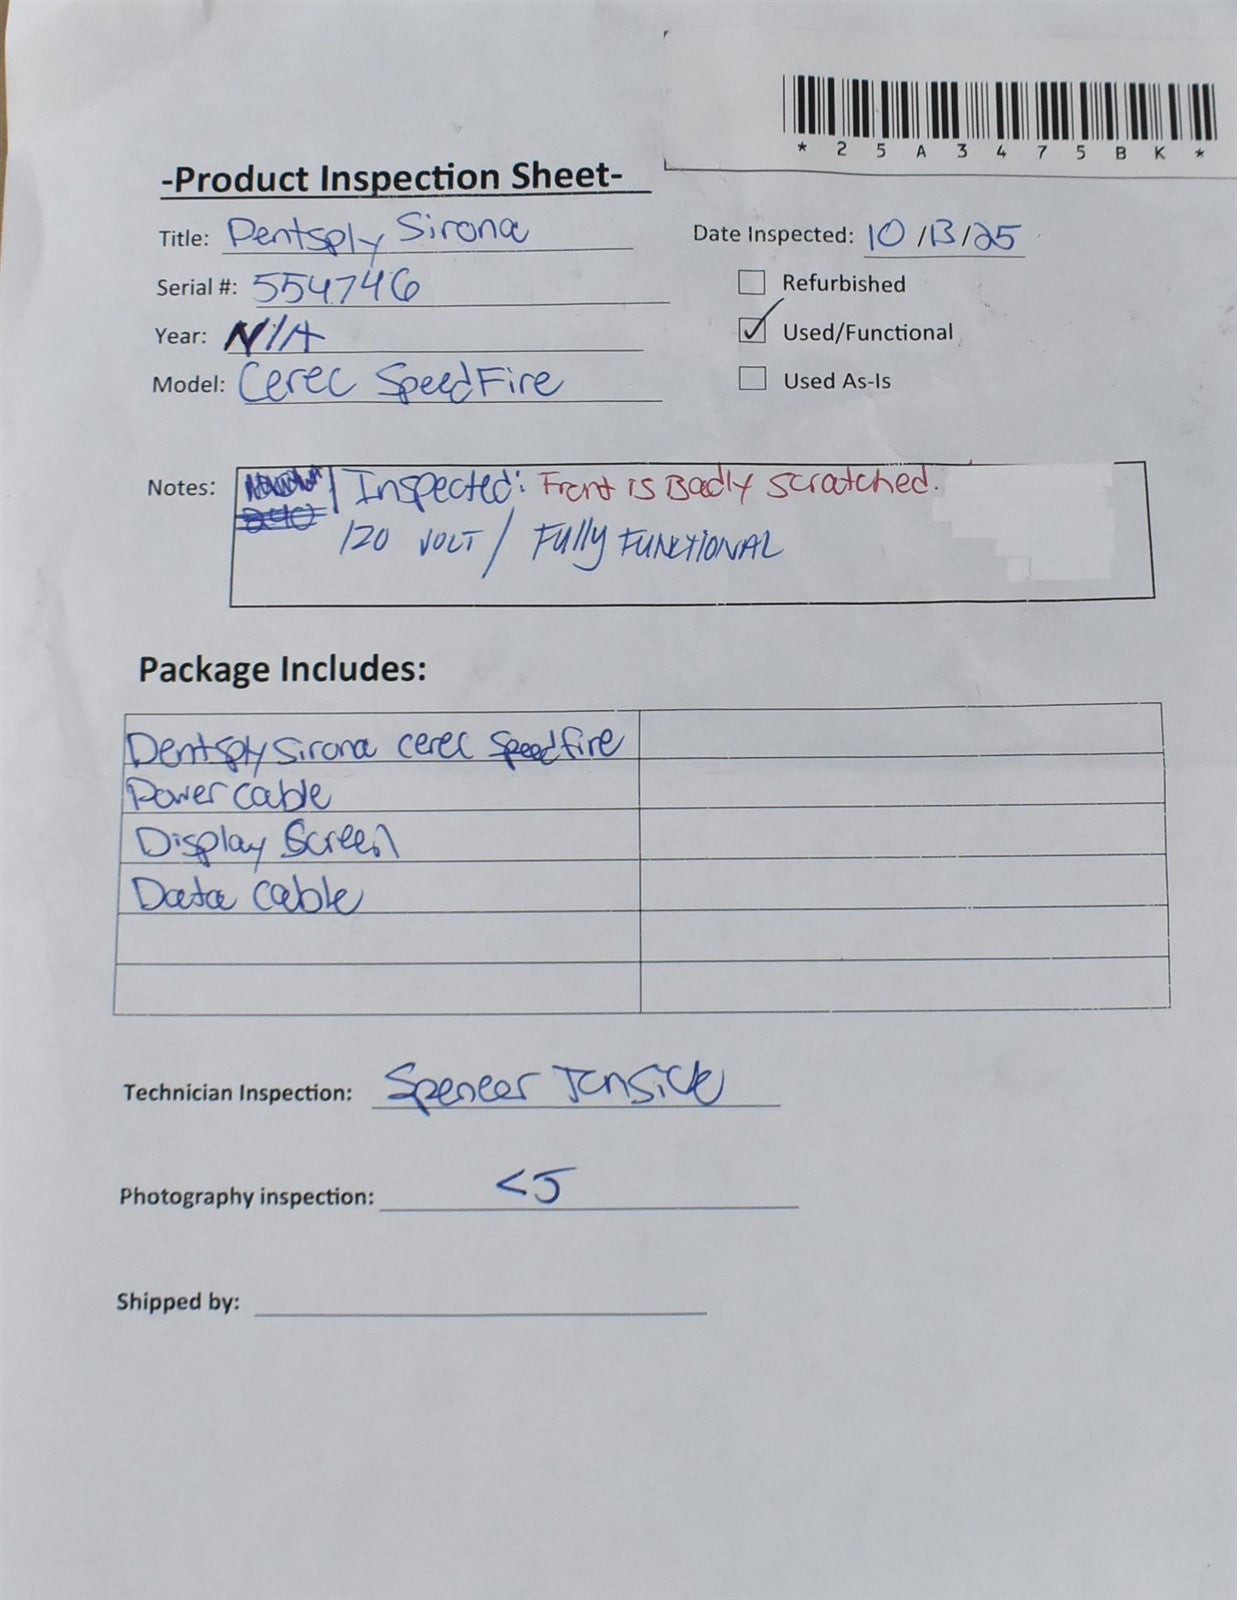 * 2 5 A 3 4 7 5 B K *
-Product Inspection Sheet-
Title: Dentsply Sirona
Date Inspected: 10/13/25
Serial #: 554746
Refurbished
Year: N/A
Used/Functional
Model: Cerec SpeedFire
Used As-Is
Notes: Inspected: Front is Badly scratched.
120 VOLT / Fully FUNCTIONAL
Package Includes:
Dentsply Sirona cerec Speedfire
Power cable
Display Screen
Data cable
Technician Inspection: Spencer
Photography inspection:
Shipped by: